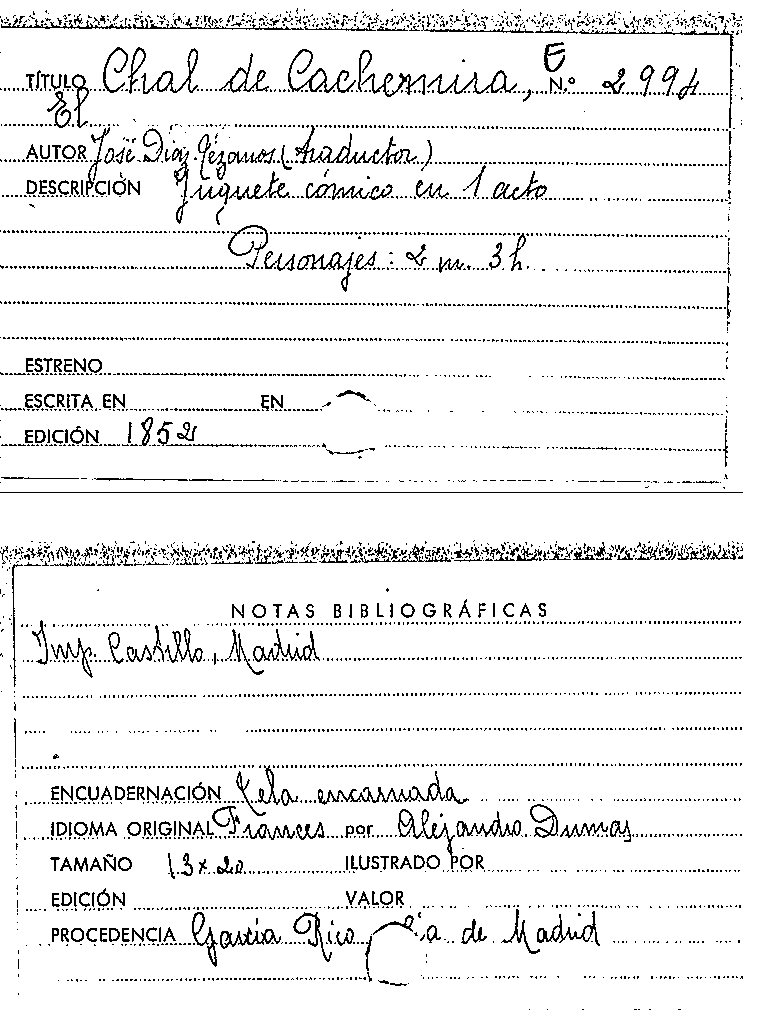 E
TÍTULO Chal de Cachemira, N.º 2994
El
AUTOR José Díaz Tézanos (traductor)
DESCRIPCIÓN Juguete cómico en 1 acto
Personajes: 2 m. 3 h.
ESTRENO
ESCRITA EN EN
EDICIÓN 1852
NOTAS BIBLIOGRÁFICAS
Imp. Castillo, Madrid
ENCUADERNACIÓN Tela encarnada
IDIOMA ORIGINAL Frances por Alejandro Dumas
TAMAÑO 13 x 20 ILUSTRADO POR
EDICIÓN VALOR
PROCEDENCIA García Rico de Madrid